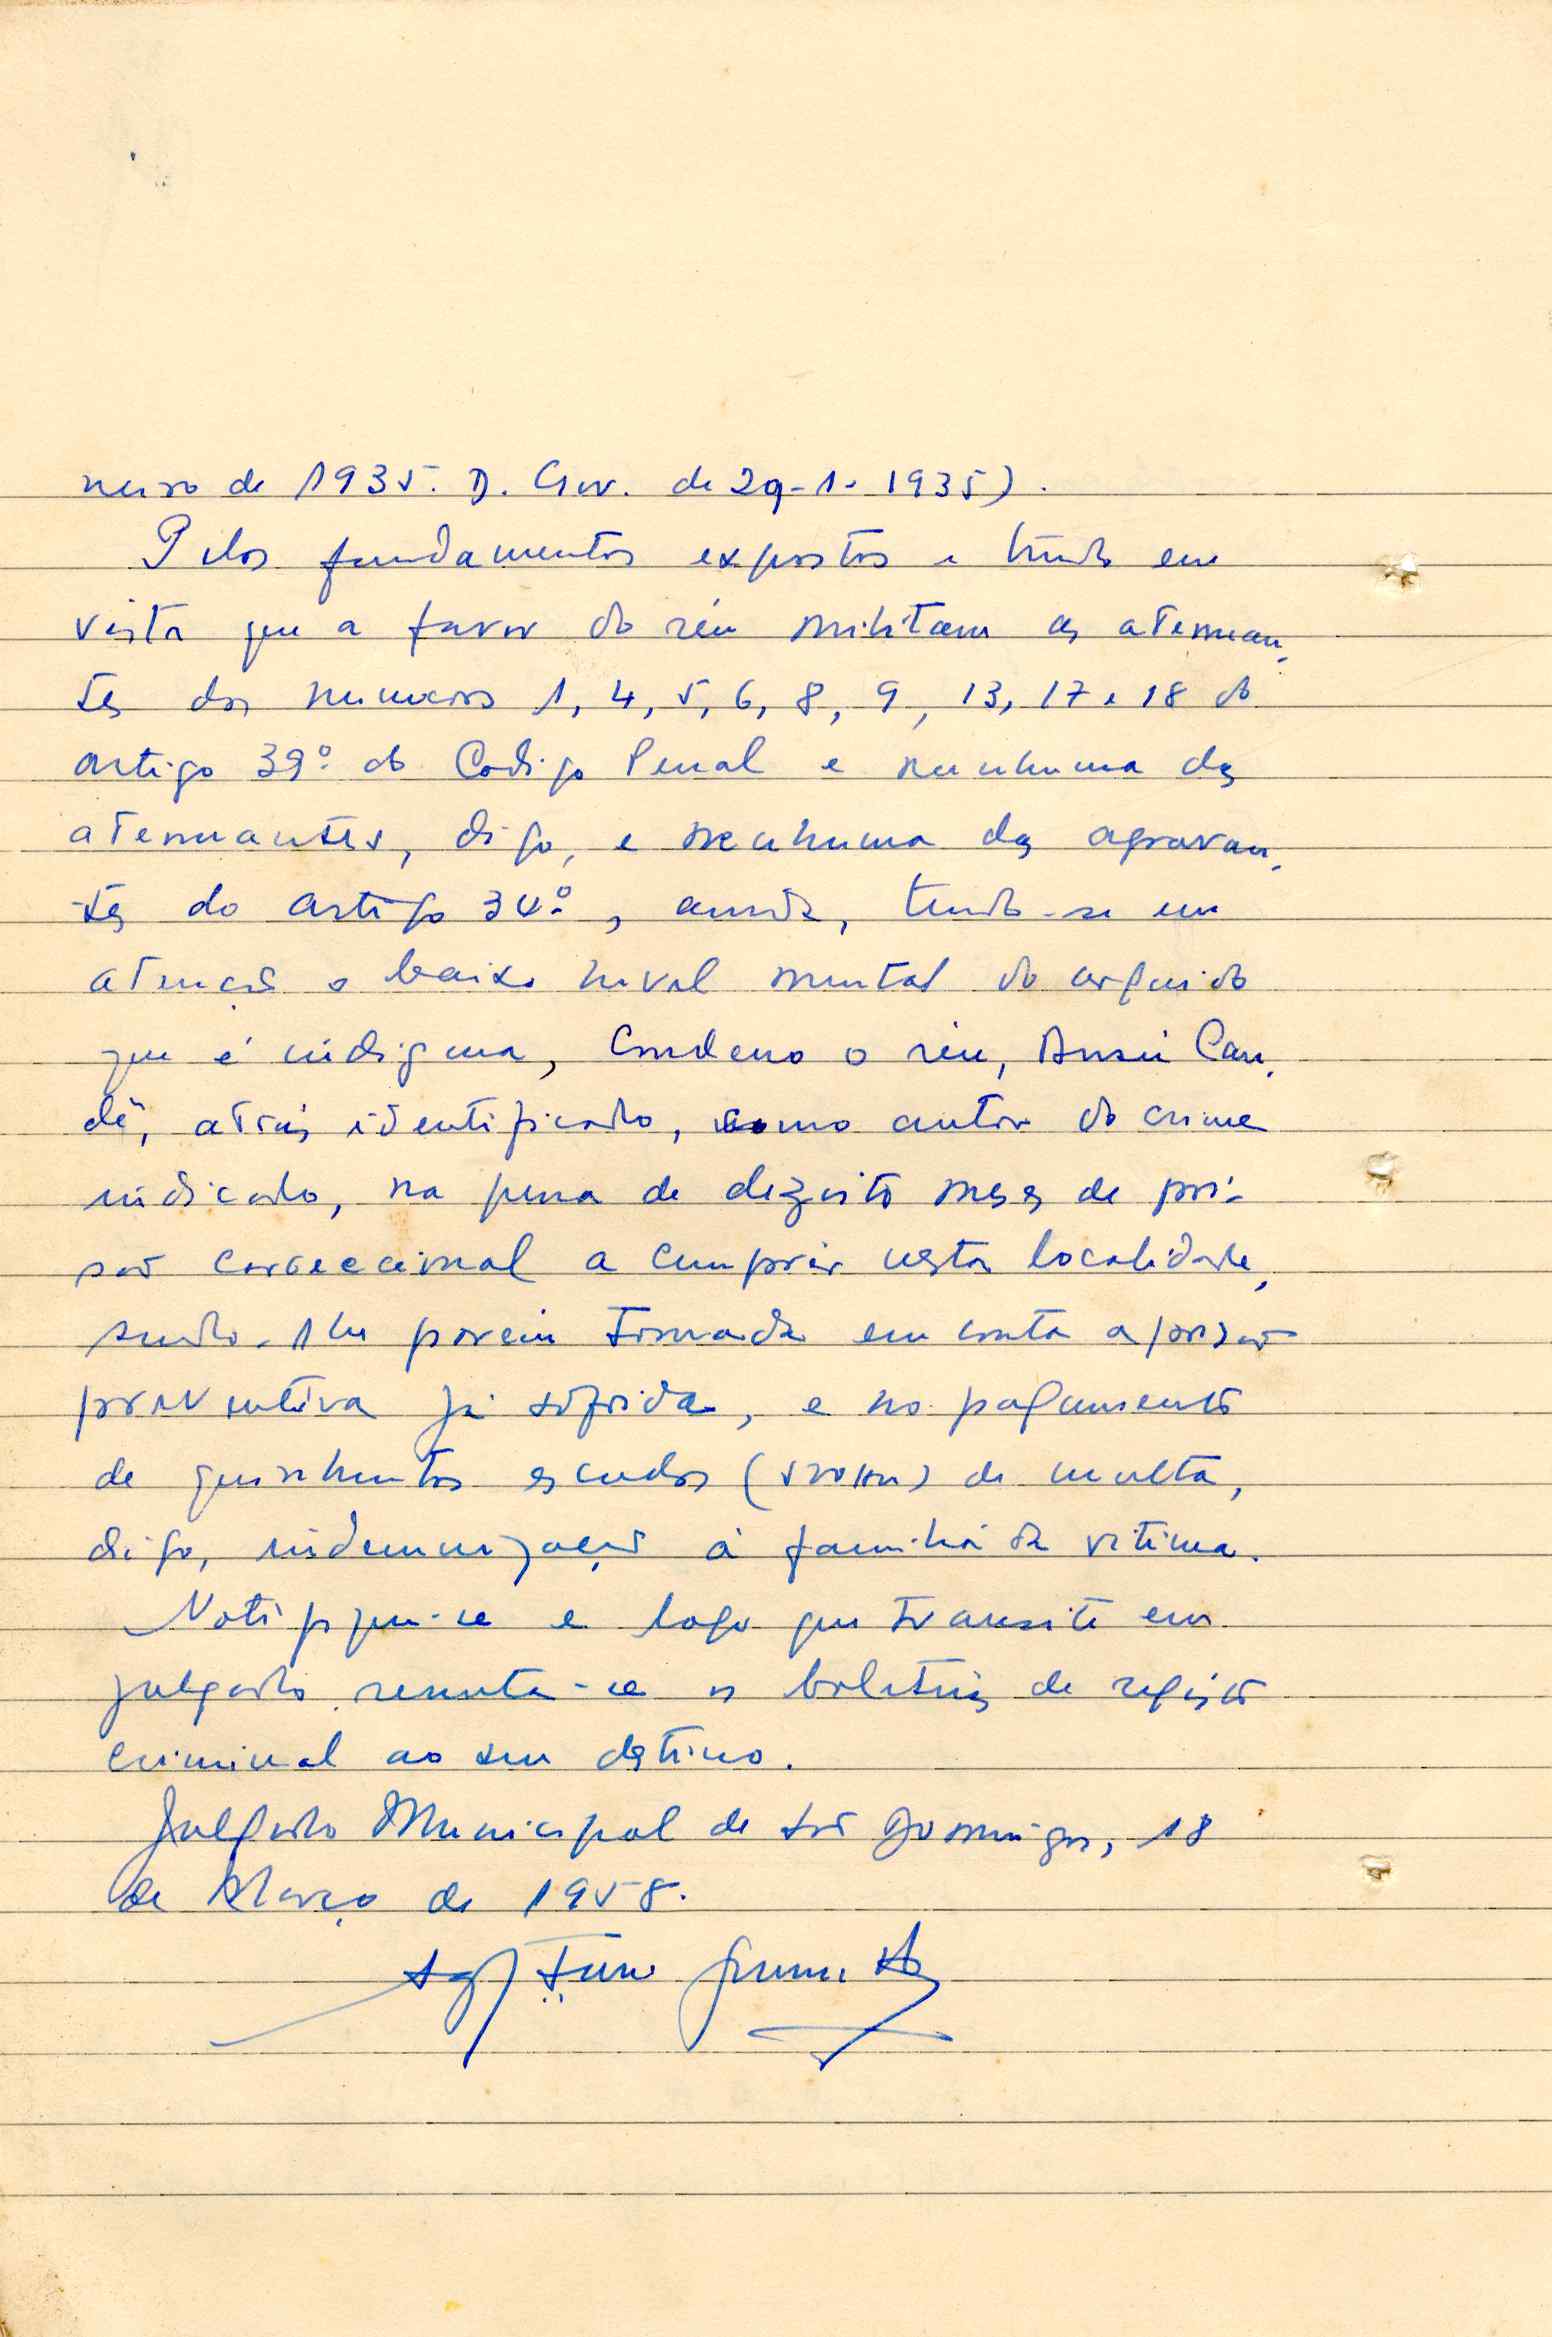 neiro de 1935. D. Gov. de 29-1-1935).
Pelos fundamentos expostos e tendo em
vista que a favor do réu militam as atenuan-
tes dos numeros 1, 4, 5, 6, 8, 9, 13, 17 e 18 do
artigo 39º do Codigo Penal e nenhuma das
atenuantes, digo, e nenhuma das agravan-
tes do artigo 34º, ainda, tendo-se em
atenção o baixo nivel mental do arguido
que é indigena, condeno o réu, Ansú Can-
dé, atrás identificado, como autor do crime
indicado, na pena de dezoito meses de pri-
são correccional a cumprir nesta localidade,
sendo-lhe porém tomada em conta a prisão
preventiva já sofrida, e no pagamento
de quinhentos escudos (500$00) de multa,
digo, indemnização á familia da vitima.
Notifique-se e logo que transite em
julgado remeta-se os boletins de registo
criminal ao seu destino.
Julgado Municipal de São Domingos, 18
de Março de 1958.